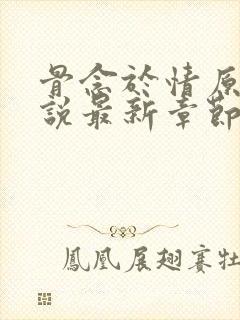 骨念於情原
說最新章節
鳳凰展翅賽牡